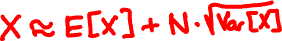 X ≈ E[X] + N·√Var[X]